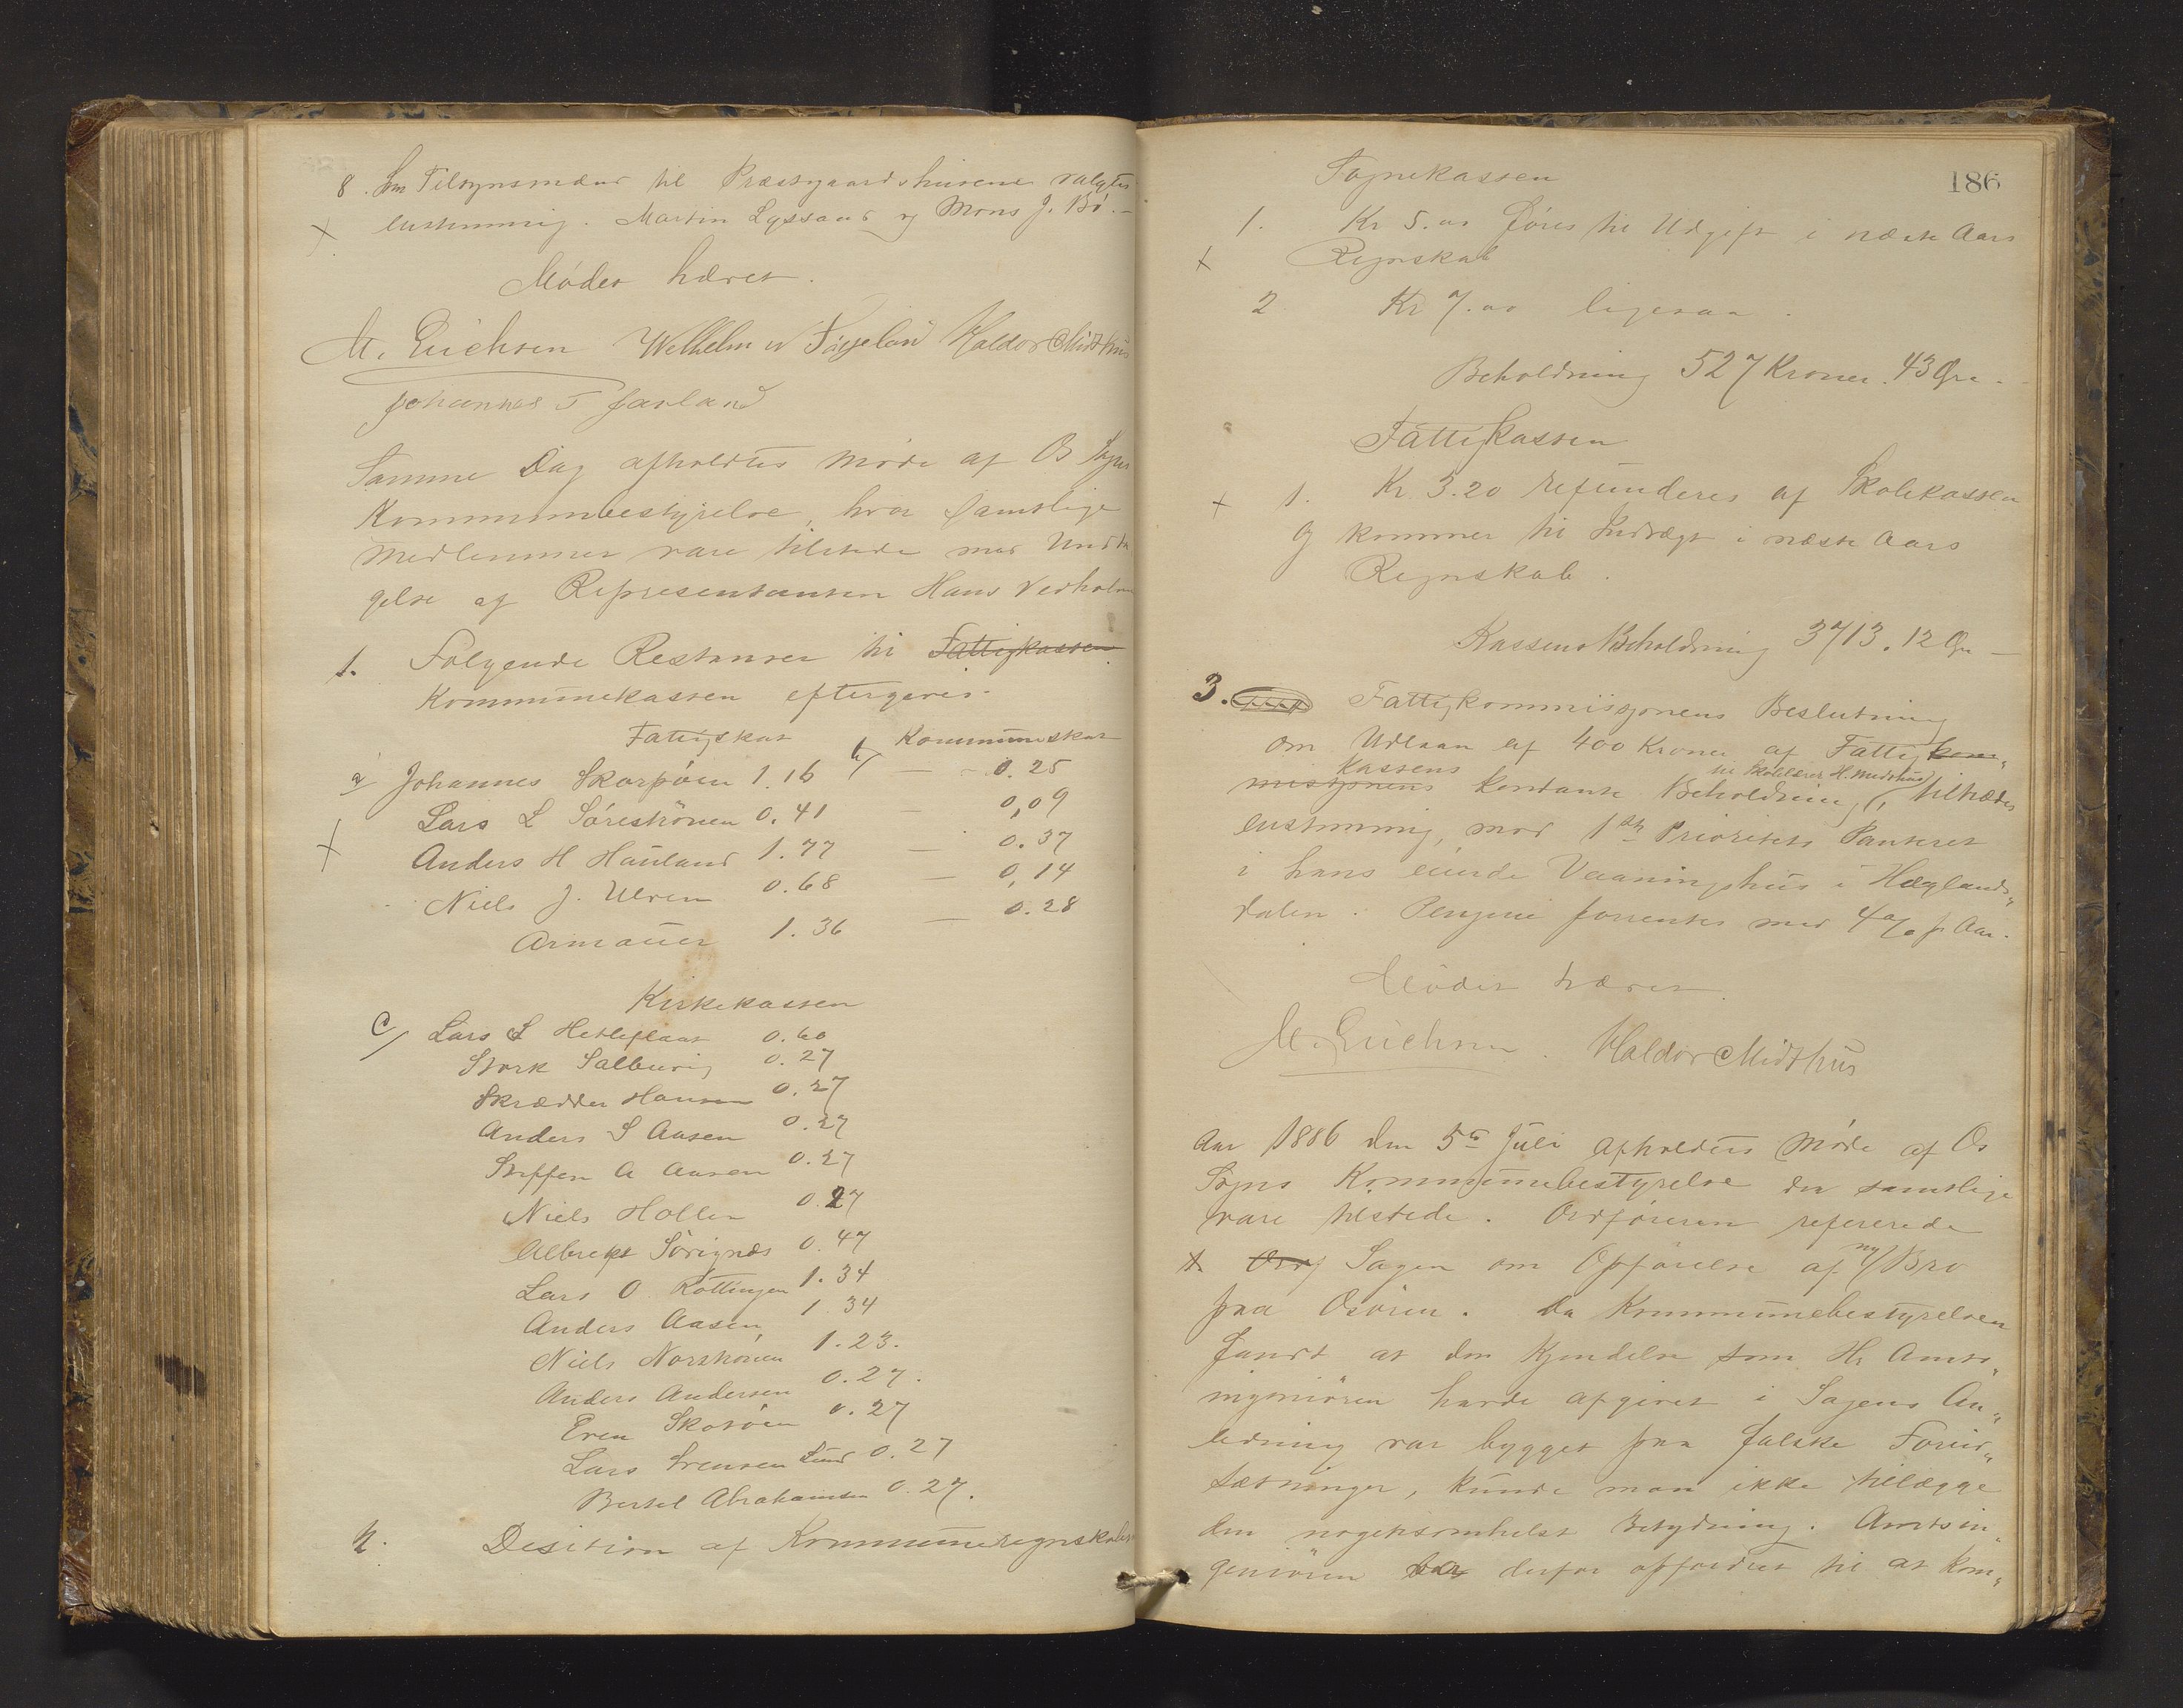 8. Som Tilsynsmænd til Præstegaardshusene valgtes
enstemmig. Martin Lyssand og Mons J. Bø. –
Mødet hævet.
M. Erichsen Wilhelm N Færseland Haldor Midthus
Johannes T Javland
Samme Dag afholdtes Møde af Os Sogns
Kommunebestyrelse, hvor samtlige
Medlemmer vare tilstede med Undta
gelse af Repræsentanten Hans Vedholm
1. Følgende Restancer til Fattigkassen
Kommunekassen eftergives.
Fattigskat b/ Kommuneskat
a Johannes Skorpøen 1.16 — 0.25
Lars L Søreströnen 0.41 — 0,09
Anders H Hauland 1.77 — 0.37
Niels J. Ulven 0.68 — 0,14
Armauer 1.36 — 0.28
Kirkekassen
c/ Lars L Hetleflaat 0.60
Stork Salbuvig 0.27
Skrædder Hansen 0.27
Anders S Aasen 0.27
Steffen A Aasen 0.27
Niels Hollen 0.27
Albregt Sørignæs 0.47
Lars O. Røttingen 1.34
Anders Aasen 1.34
Niels Norströnen 1.23.
Anders Andersen 0.27.
Even Skorøen 0.27
Lars Svensen Lund 0.27
Bertel Abrahamsen 0.27.
2. Desition af Kommuneregnskabet
186
Sognekassen
1. Kr 5.00 føres til Udgift i næste Aars
Regnskab
2 Kr 7.00 ligesaa.
Beholdning 527 Kroner. 43 Øre.
Fattigkassen
1. Kr 3.20 refunderes af Skolekassen
og kommer til Indtægt i næste Aars
Regnskab.
Kassens Beholdning 3713.12 Øre —
3. Fattigkommissjonens Beslutning
om Udlaan af 400 Kroner af Fattigkom„
kassens til Skolelærer H. Midthus
missjonens kontante Beholdning, tiltrædes
enstemmig, mod 1ste Prioritets Panteret
i hans eiende Vaaningshus i Hæglands„
dalen. Pengene forrentes med 4% p. Aar.
Mødet hævet.
M. Erichsen. Haldor Midthus
Aar 1886 den 5te Juli afholdtes Møde af Os
Sogns Kommunebestyrelse der samtlige
vare tilstede. Ordføreren refererede
1. Sagen om Opførelse af ny Bro
paa Osøren. Da Kommunebestyrelsen
fandt at den Kjendelse som Hr Amts„
ingeniøren havde afgivet i Sagens An„
ledning var bygget paa falske Forud„
sætninger, kunde man ikke tillægge
den nogetsomhelst Betydning. Amtsin„
geniøren bør derfor opfordres til at kom„